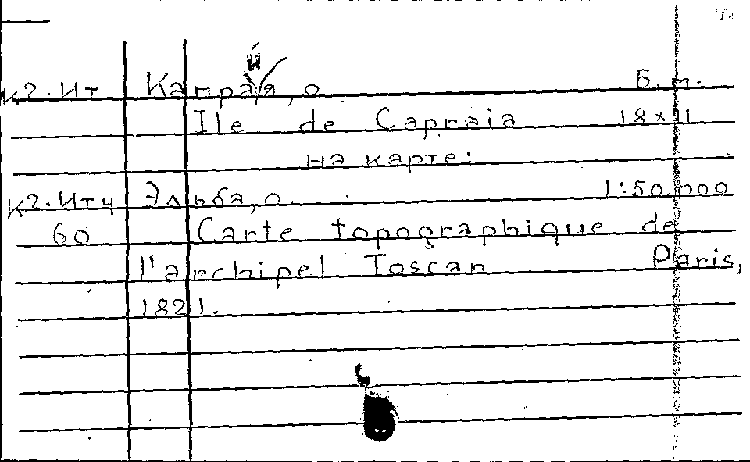 к2.Ит Капрайя, о Б.м.
Ile de Capraia 18×11
на карте:
к2.Ит4 Эльба, о. 1:50.000
60 Carte topographique de
l'archipel Toscan Paris,
1821.